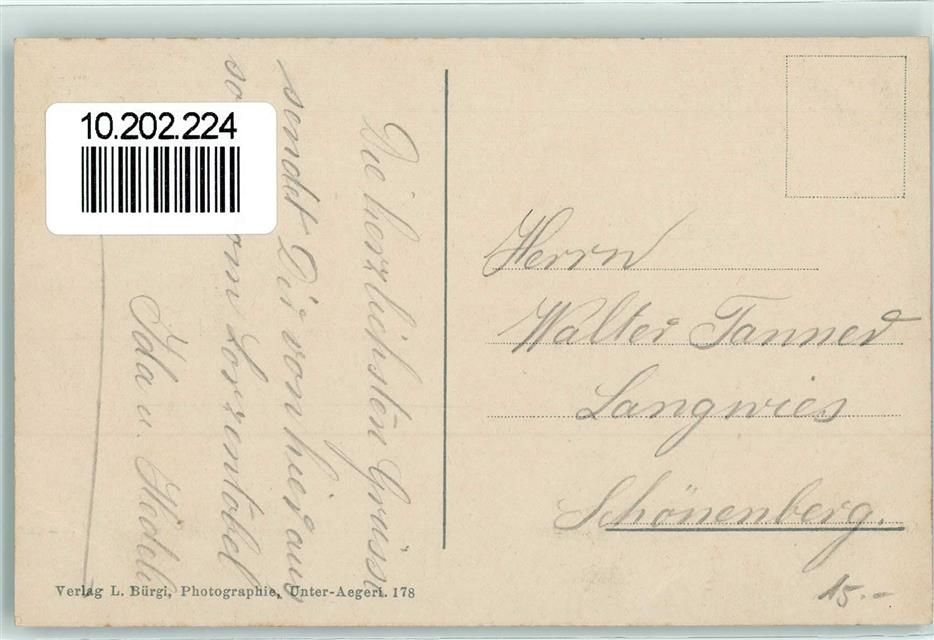 10.202.224
Die herzlichsten Grüsse
sendet Dir von hier aus
Lorzentobel
Ida u.
Herrn
Walter Tanner
Langwies
Schönenberg.
Verlag L. Bürgi, Photographie, Unter-Aegeri. 178
15.-